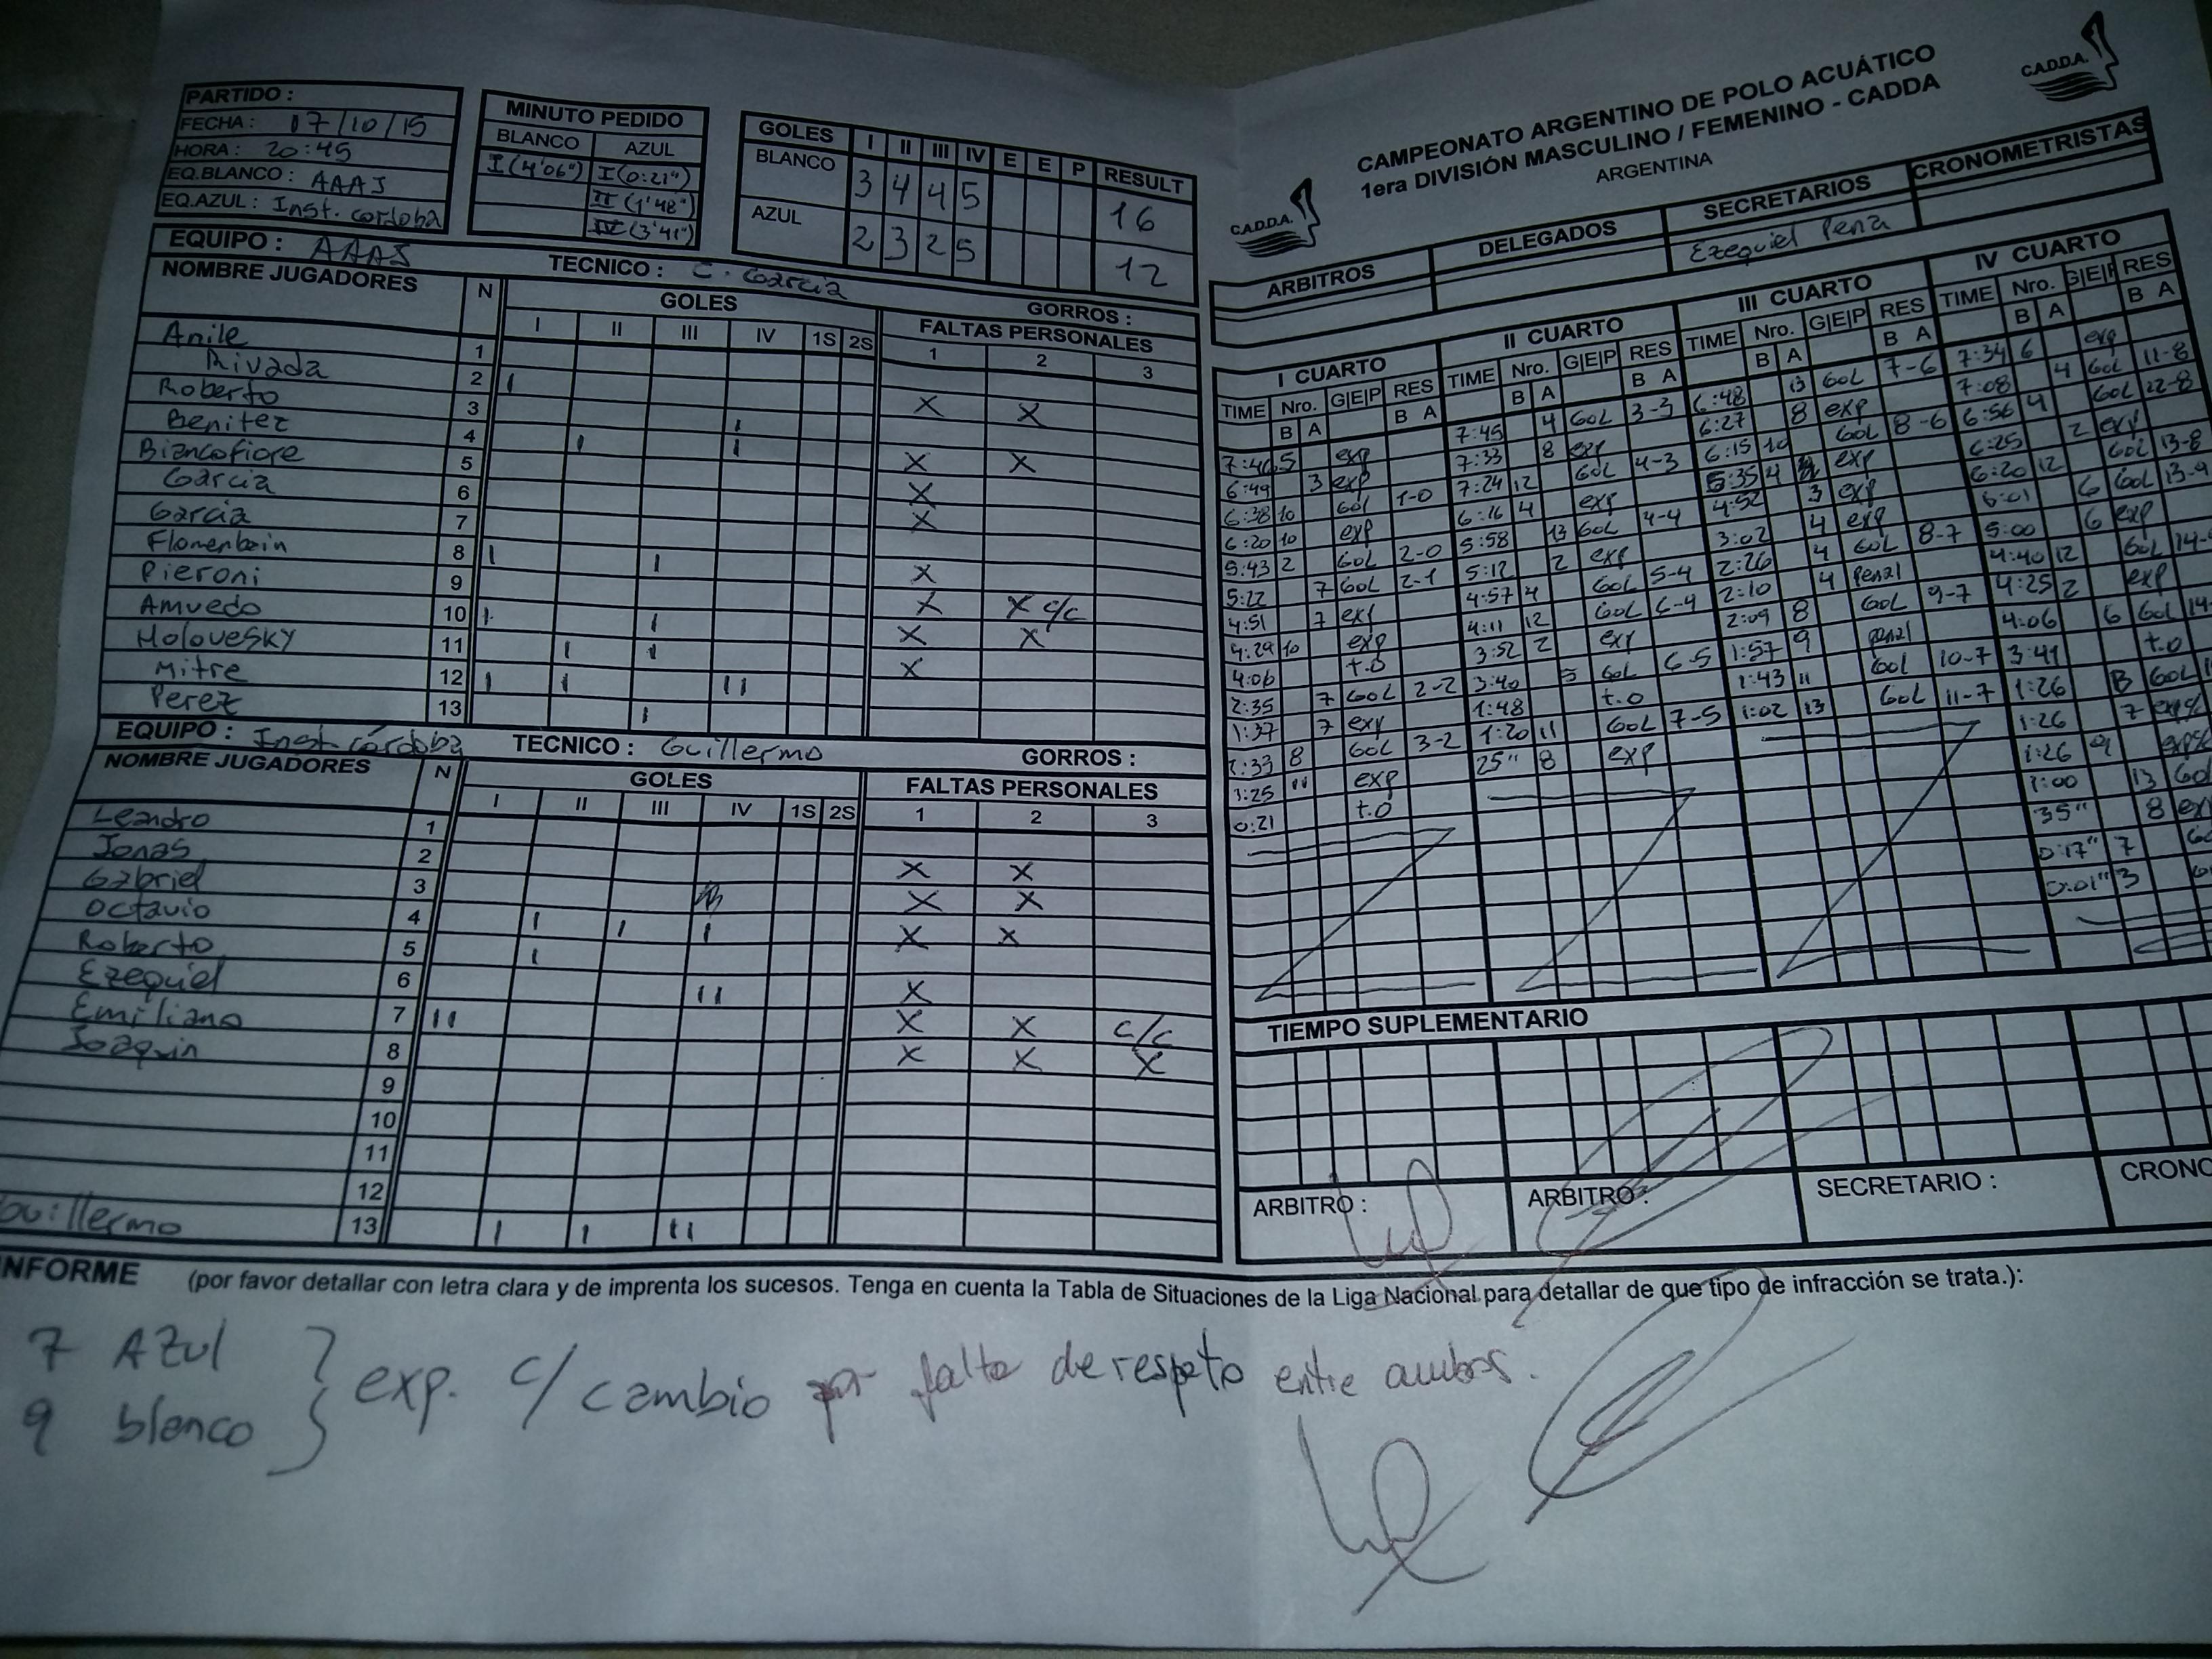 PARTIDO :
FECHA : 17/10/15
HORA : 20:45
EQ.BLANCO : AAAJ
EQ.AZUL : Inst. cordoba
MINUTO PEDIDO
BLANCO AZUL
I (4'06") I (0:21")
II (1'48")
IV (3'41")
GOLES I II III IV E E P RESULT
BLANCO 3 4 4 5 16
AZUL 2 3 2 5 12
EQUIPO : AAAJ TECNICO : C. Garcia GORROS :
NOMBRE JUGADORES N GOLES FALTAS PERSONALES
I II III IV 1S 2S 1 2 3
Anile 1
Rivada 2 I
Roberto 3 X X
Benitez 4 I I
Biancofiore 5 X X
Garcia 6 X
Garcia 7 X
Flomenboin 8 I I
Pieroni 9 X
Amuedo 10 I I X X c/c
Holovesky 11 I I X X
Mitre 12 I I II X
Perez 13 I
EQUIPO : Inst córdoba TECNICO : Guillermo GORROS :
NOMBRE JUGADORES N GOLES FALTAS PERSONALES
I II III IV 1S 2S 1 2 3
Leandro 1
Jonas 2 X X
Gabriel 3 X X
Octavio 4 I I I X X
Roberto 5 I
Ezequiel 6 II X
Emiliano 7 II X X c/c
Joaquin 8 X X X
9
10
11
12
Guillermo 13 I I II
CAMPEONATO ARGENTINO DE POLO ACUÁTICO
1era DIVISIÓN MASCULINO / FEMENINO - CADDA
ARGENTINA
C.A.D.D.A.
C.A.D.D.A.
ARBITROS DELEGADOS SECRETARIOS CRONOMETRISTAS
Ezequiel Pena
I CUARTO
TIME Nro. G|E|P RES
B A B A
7:46 5 exp
6:49 3 exp
6:38 10 Gol 1-0
6:20 10 exp
5:43 2 Gol 2-0
5:22 7 Gol 2-1
4:51 7 exp
4:29 10 exp
4:06 t.o
2:35 7 Gol 2-2
1:37 7 exp
1:33 8 Gol 3-2
1:25 11 exp
0:21 t.o
II CUARTO
TIME Nro. G|E|P RES
B A B A
7:45 4 GOL 3-3
7:33 8 exp
7:24 12 Gol 4-3
6:16 4 exp
5:58 13 GOL 4-4
5:12 2 exp
4:57 4 Gol 5-4
4:11 12 Gol 6-4
3:52 2 exp
3:40 5 Gol 6-5
1:48 t.o
1:20 11 GOL 7-5
25" 8 exp
III CUARTO
TIME Nro. G|E|P RES
B A B A
6:48 13 Gol 7-6
6:27 8 exp
6:15 10 Gol 8-6
5:35 4 exp
4:52 3 exp
3:02 4 exp
2:26 4 Gol 8-7
2:10 4 Penal
2:09 8 Gol 9-7
1:57 9 penal
1:43 11 Gol 10-7
1:02 13 Gol 11-7
IV CUARTO
TIME Nro. G|E|P RES
B A B A
7:34 6 exp
7:08 4 Gol 11-8
6:56 4 Gol 12-8
6:25 2 exp
6:20 12 Gol 13-8
6:01 6 Gol 13-9
5:00 6 exp
4:40 12 Gol 14-
4:25 2 exp
4:06 6 Gol 14-
3:41 t.o
1:26 Gol
1:26 7
1:26 9
1:00 13
35" 8
0:17" 7
0:01" 3
TIEMPO SUPLEMENTARIO
ARBITRO : ARBITRO : SECRETARIO : CRONO
NFORME (por favor detallar con letra clara y de imprenta los sucesos. Tenga en cuenta la Tabla de Situaciones de la Liga Nacional para detallar de que tipo de infracción se trata.):
7 Azul
9 blanco
exp. c/ cambio por falta de respeto entre ambos.